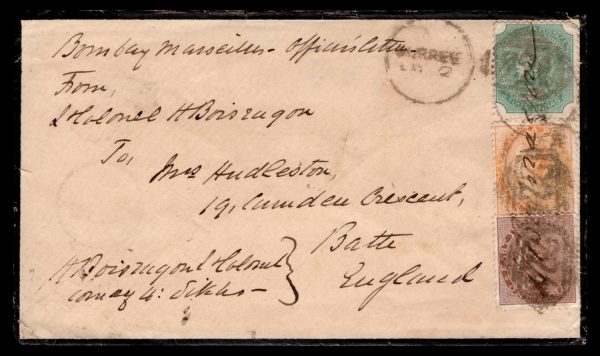 Bombay Marseilles - Officer's letter -
MURREE
2
From,
Lt Colonel H Boisragon
To,
Mrs Hudleston,
19, Camden Crescent,
Bath
England
H Boisragon Lt Colonel
Comdg 4: Sikhs -